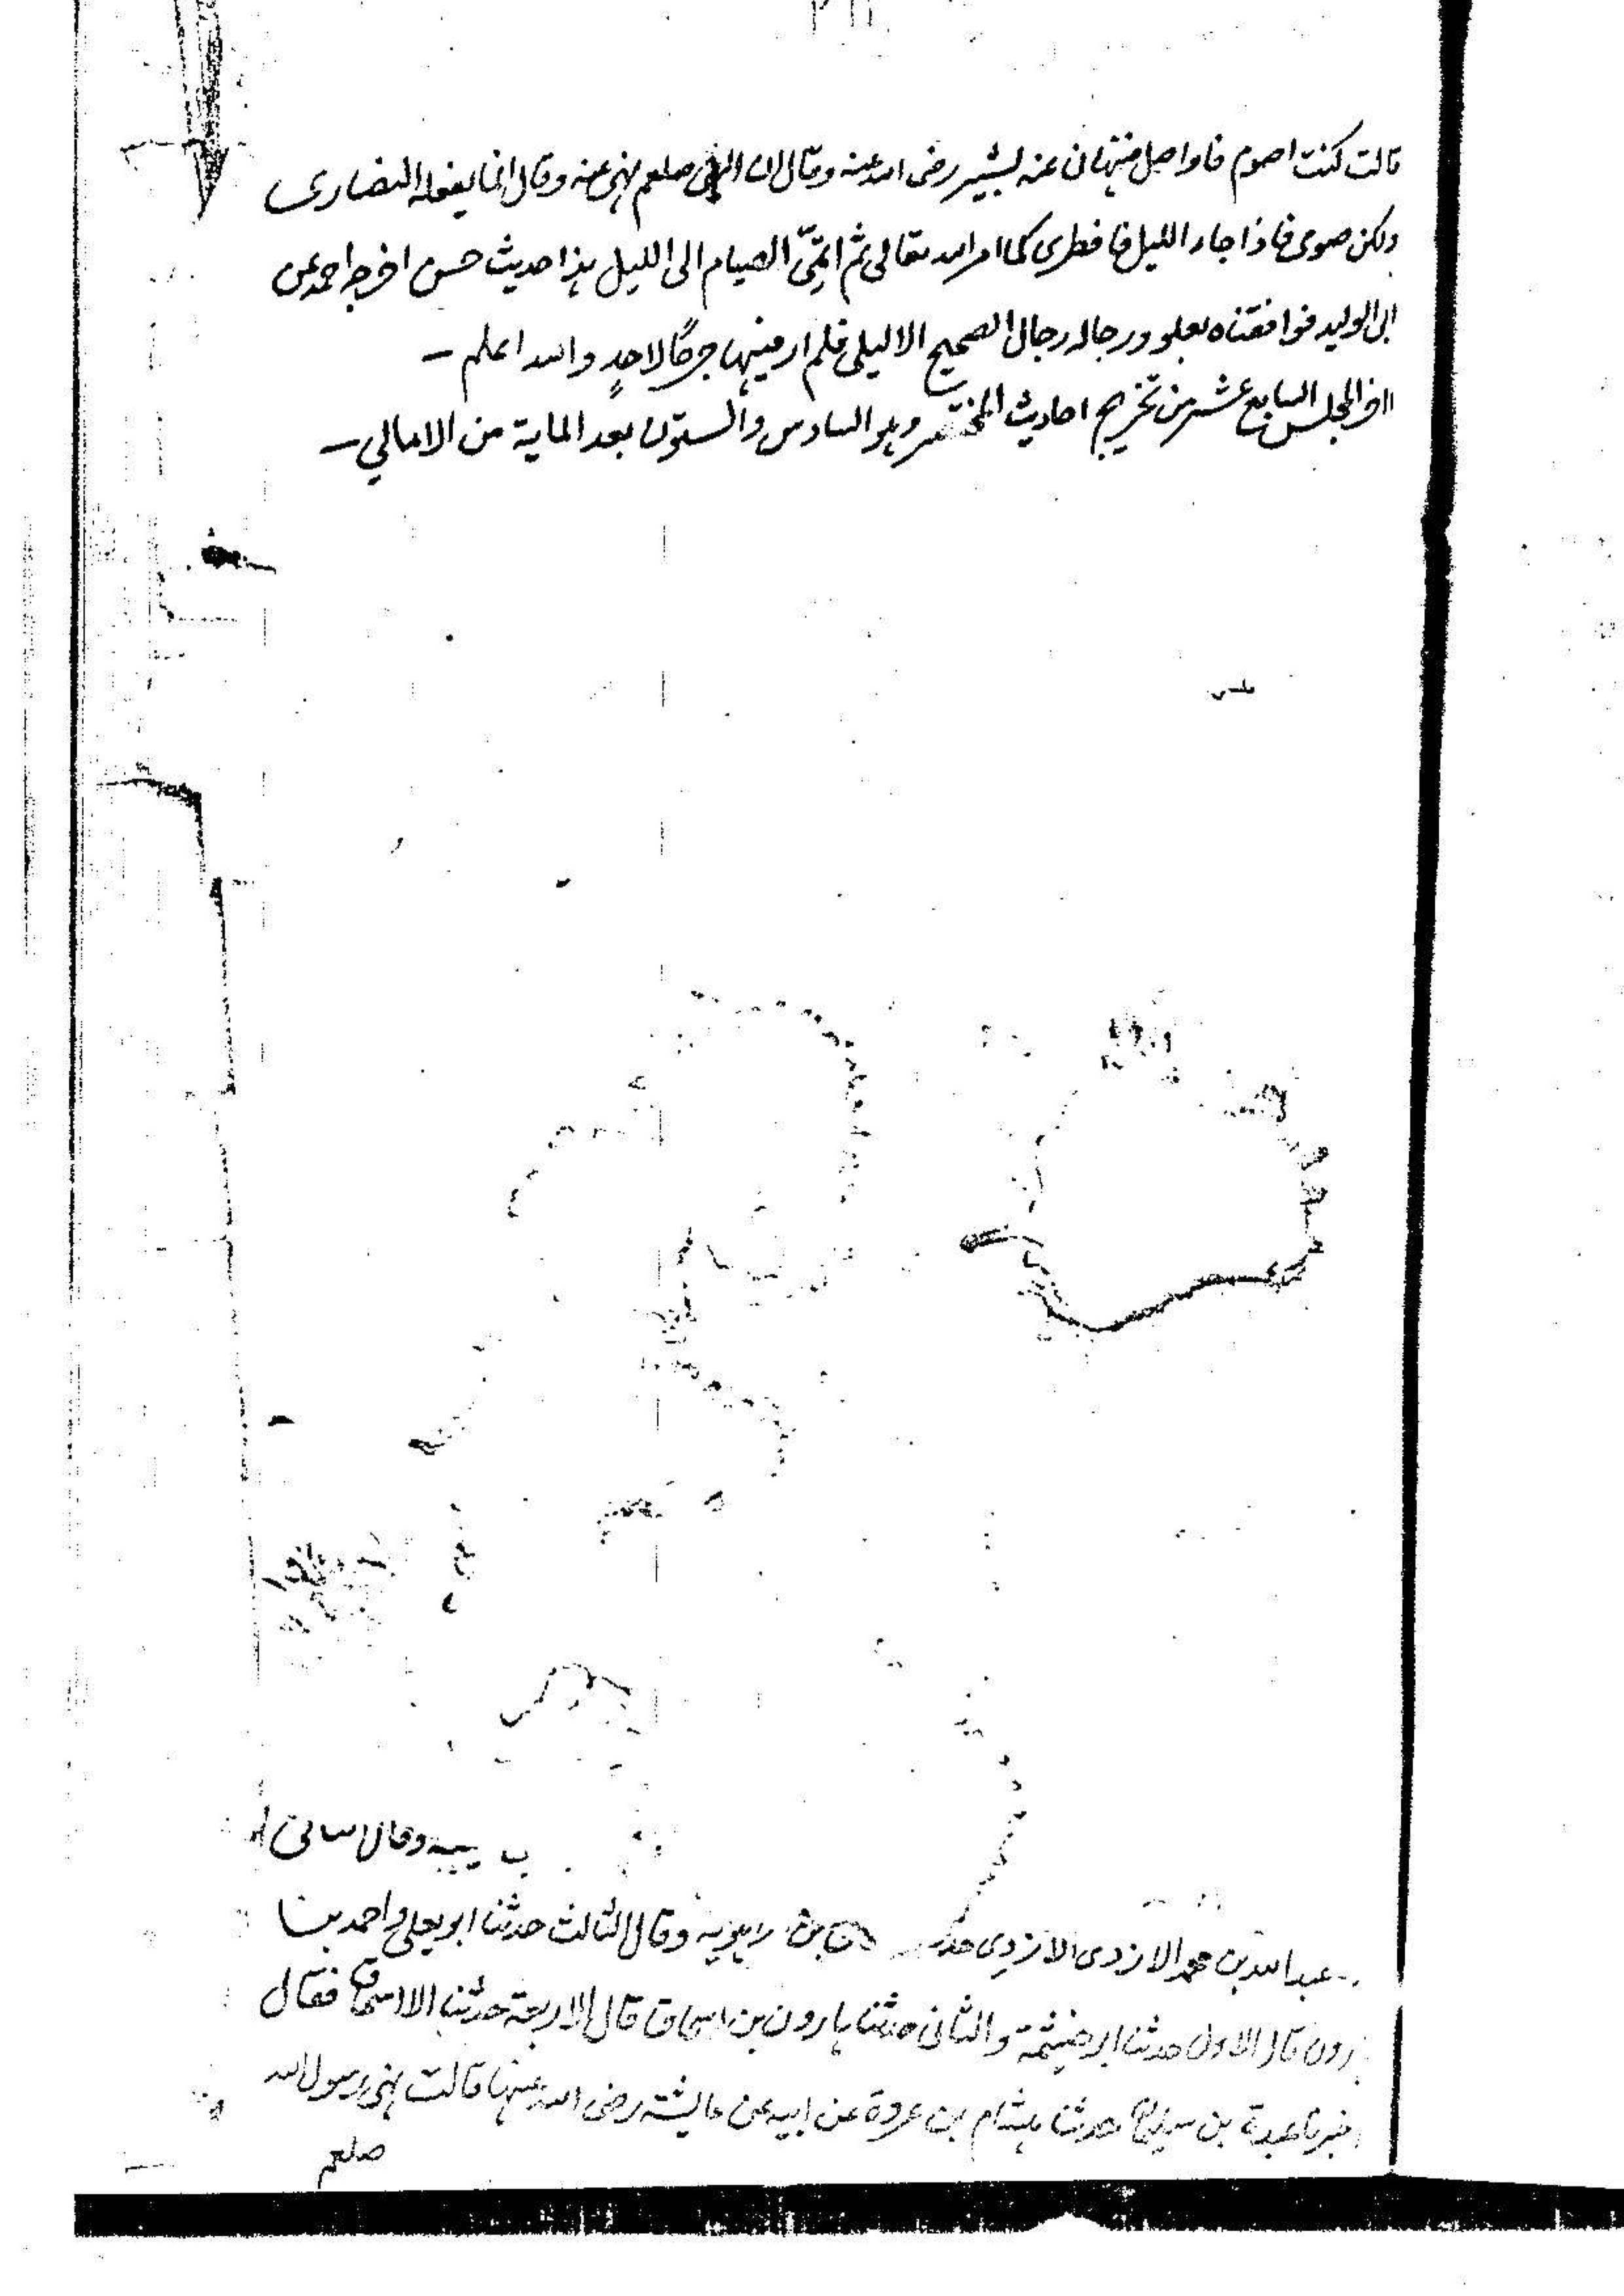 قالت كنت اصوم فاواصل فنهانى عنه بشير رضى الله عنه وقال ان النبى صلعم نهى عنه وقال انما يفعله النصارى
ولكن صومى فاذا جاء الليل فافطرى كما امر الله تعالى ثم اتمّى الصيام الى الليل هذا حديث حسن اخرجه احمد عن
ابى الوليد فوافقناه بعلو ورجاله رجال الصحيح الا ليلى فلم ار فيها جرحًا لاحدٍ والله اعلم –
اخر المجلس السابع عشر من تخريج احاديث المختصر وهو السادس والستون بعد الماية من الامالي –
وقال
عبد الله بن محمد الازدى الازدى بن راهويه وقال الثالث حدثنا ابو يعلى واحمد بن
قال الاول حدثنا ابو خيثمة والثانى حدثنا هارون بن اسحاق قال الاربعة حدثنا الا اسحاق فقال
عبدة بن سليمان حدثنا هشام بن عروة عن ابيه عن عايشة رضى الله عنها قالت نهى رسول الله
صلعم